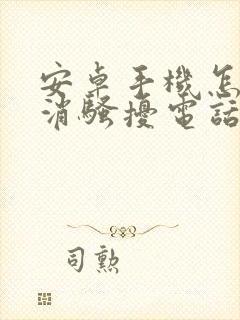 安卓手機怎
消騷擾電話
司勲